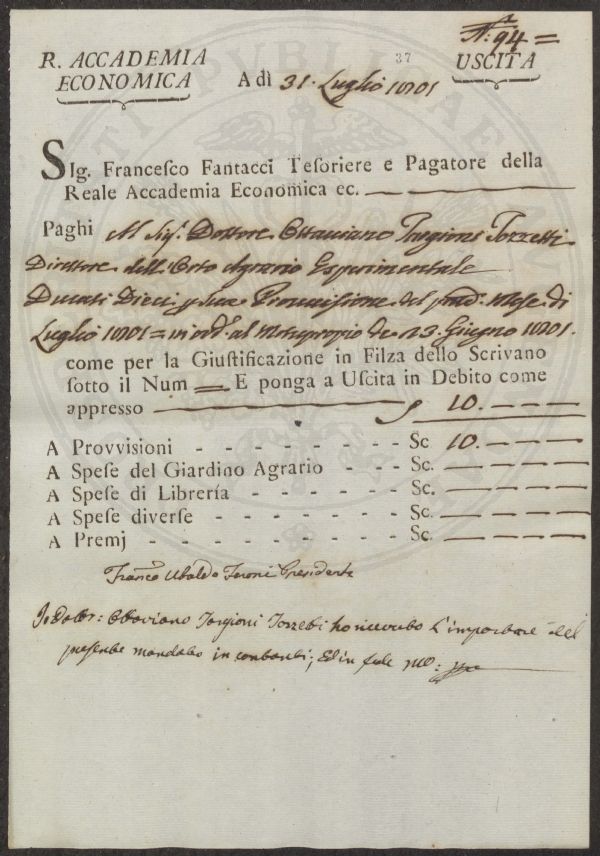 N.º 94 =
R. ACCADEMIA
ECONOMICA
A dì 31. Luglio 1801
37
USCITA
SIg. Francesco Fantacci Tesoriere e Pagatore della
Reale Accademia Economica ec.
Paghi Al Sig.r Dottore Ottaviano Targioni Tozzetti
Direttore dell'Orto Agrario Esperimentale
Ducati Dieci p sua Provvisione del pred.º Mese di
Luglio 1801 = in ord.e al Motuproprio de 23. Giugno 1801.
come per la Giustificazione in Filza dello Scrivano
sotto il Num = E ponga a Uscita in Debito come
appresso 10. — — —
A Provvisioni - - - - - - - - Sc. 10. — — —
A Spese del Giardino Agrario - - - Sc. — — — —
A Spese di Librería - - - - - - Sc. — — — —
A Spese diverse - - - - - - - Sc. — — — —
A Premj - - - - - - - - - Sc. — — — —
Franc.º Ubaldo Feroni Presidente
Io Dottor: Ottaviano Targioni Tozzetti ho ricevuto l'importare del
presente mandato in contanti; Ed in fede